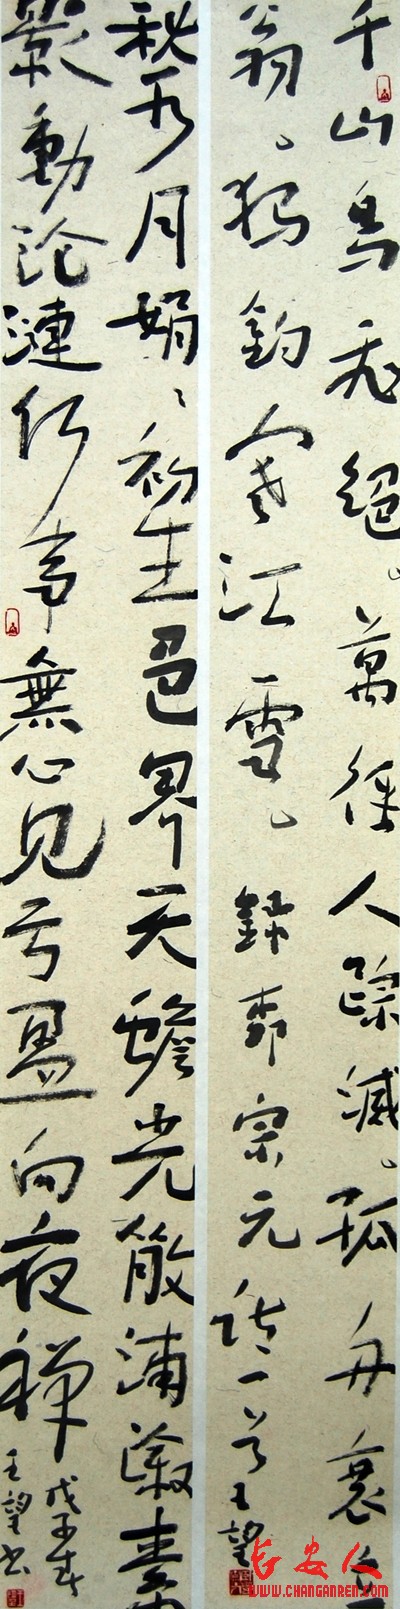 千山鳥飛絕萬徑人踪滅孤舟蓑笠
翁獨釣寒江雪錄柳宗元詩一首王望
秋水月娟娟初生色界天蟾光散浦溆素
影動淪漣何事無心見亏盈向夜禪戊子
王望书
长安人
WWW.CHANGANREN.COM